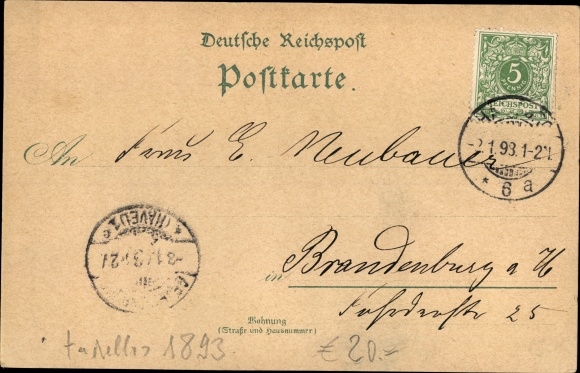 Deutsche Reichspost
Postkarte.
5
PFENNIG
REICHSPOST
-2.1.93.1-2N.
* 6 a
An Frau E. Neubauer
(HAVEL)
in Brandenburg a H
25
Wohnung
(Straße und Hausnummer)
tadellos 1893.
€ 20.-